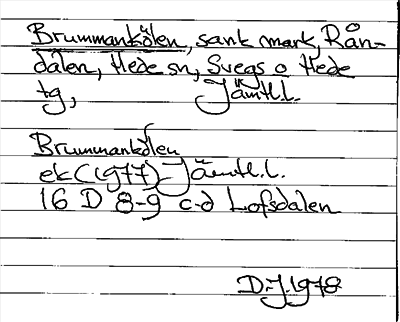 Brummankölen, sank mark, Rån-
dalen, Hede sn, Svegs o Hede
tg, Jämtl.l.
Brummankölen
ek (1977) Jämtl.l.
16 D 8-9 c-d Lofsdalen
D.J. 1978